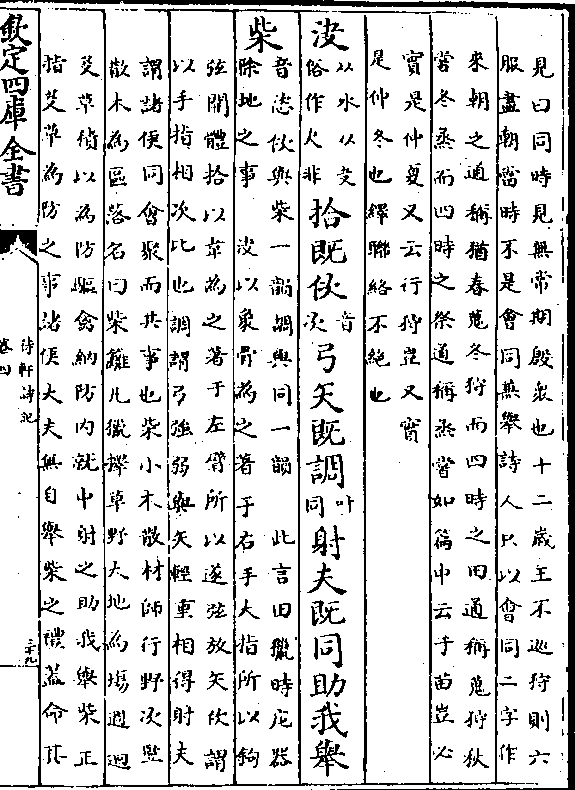 見曰同時見無常期殷衆也十二歲王不巡狩則六
服盡朝當時不是會同無舉詩人只以會同二字作
來朝之通稱猶春蒐冬狩而四時之田通稱蒐狩秋
嘗冬烝而四時之祭通稱烝嘗如篇中云于苗豈必
實是仲夏又云行狩豈又實
是仲冬也繹聯絡不絶也
決从水从夬俗作冫非拾既佽音次弓矢既調叶同射夫既同助我舉
柴音恣佽與柴一韻調與同一韻 此言田獵時庀器
除地之事 決以象骨為之著于右手大指所以鉤
弦開體拾以韋為之著于左臂所以遂弦放矢佽謂
以手指相次比也調謂弓強弱與矢輕重相得射夫
謂諸侯同會聚而共事也柴小木散材師行野次豎
散木為區落名曰柴籬凡獵擇草野大地為塲週迴
芟草積以為防驅禽納防內就中射之助我舉柴正
指芟草為防之事諸侯大夫無自舉柴之禮蓋命其
欽定四庫全書
待軒詩記
卷四
三十九